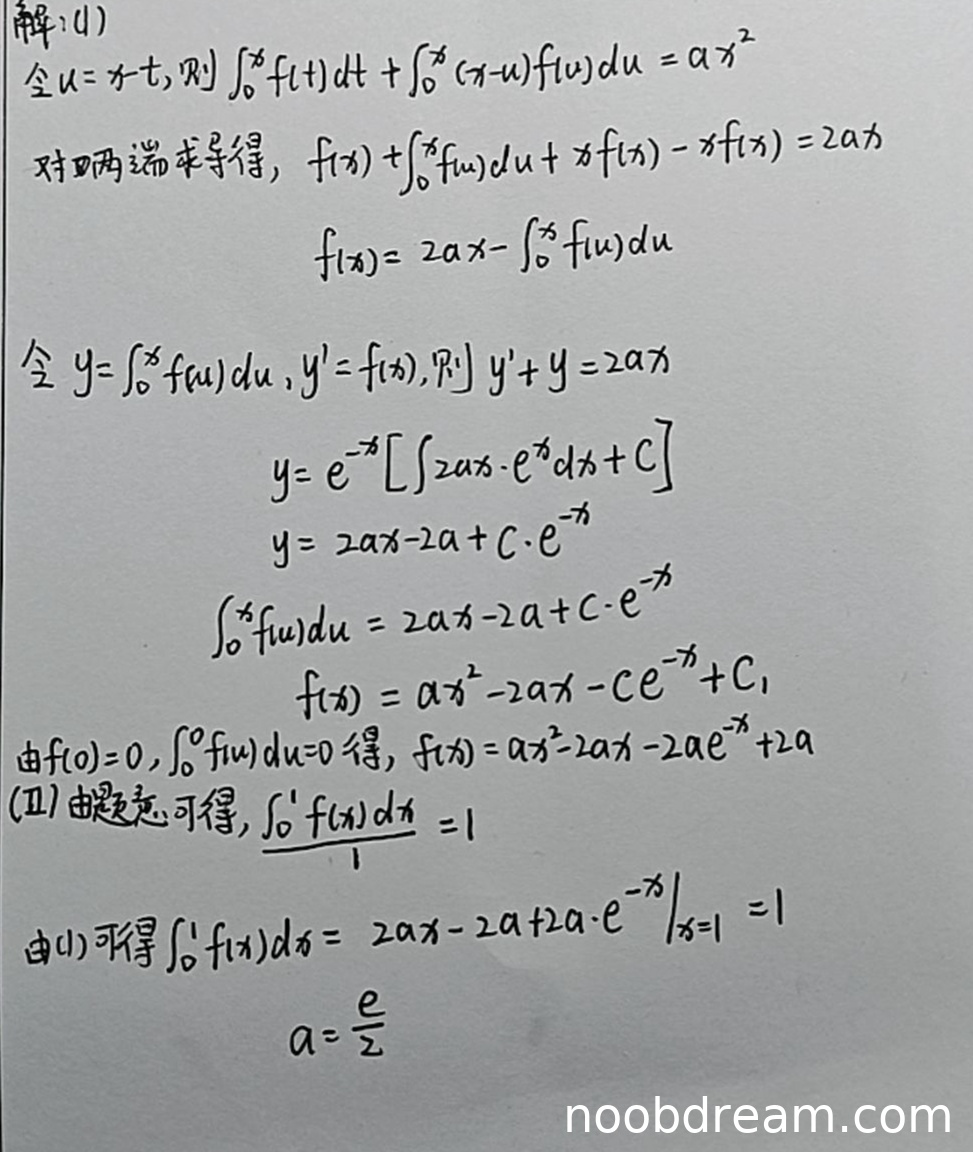 解:(1)
令u=x-t,则 ∫₀ˣf(t)dt+∫₀ˣ(x-u)f(u)du=ax²
对两端求导得, f(x)+∫₀ˣf(u)du+xf(x)-xf(x)=2ax
f(x)=2ax-∫₀ˣf(u)du
令 y=∫₀ˣf(u)du,y'=f(x),则 y'+y=2ax
y=e⁻ˣ[∫2ax·eˣdx+C]
y=2ax-2a+C·e⁻ˣ
∫₀ˣf(u)du=2ax-2a+C·e⁻ˣ
f(x)=ax²-2ax-Ce⁻ˣ+C₁
由f(0)=0,∫₀⁰f(u)du=0得, f(x)=ax²-2ax-2ae⁻ˣ+2a
(II)由题意可得, ∫₀¹f(x)dx/1=1
由(1)可得∫₀¹f(x)dx=2ax-2a+2a·e⁻ˣ|ₓ₌₁=1
a=e/2
noobdream.com